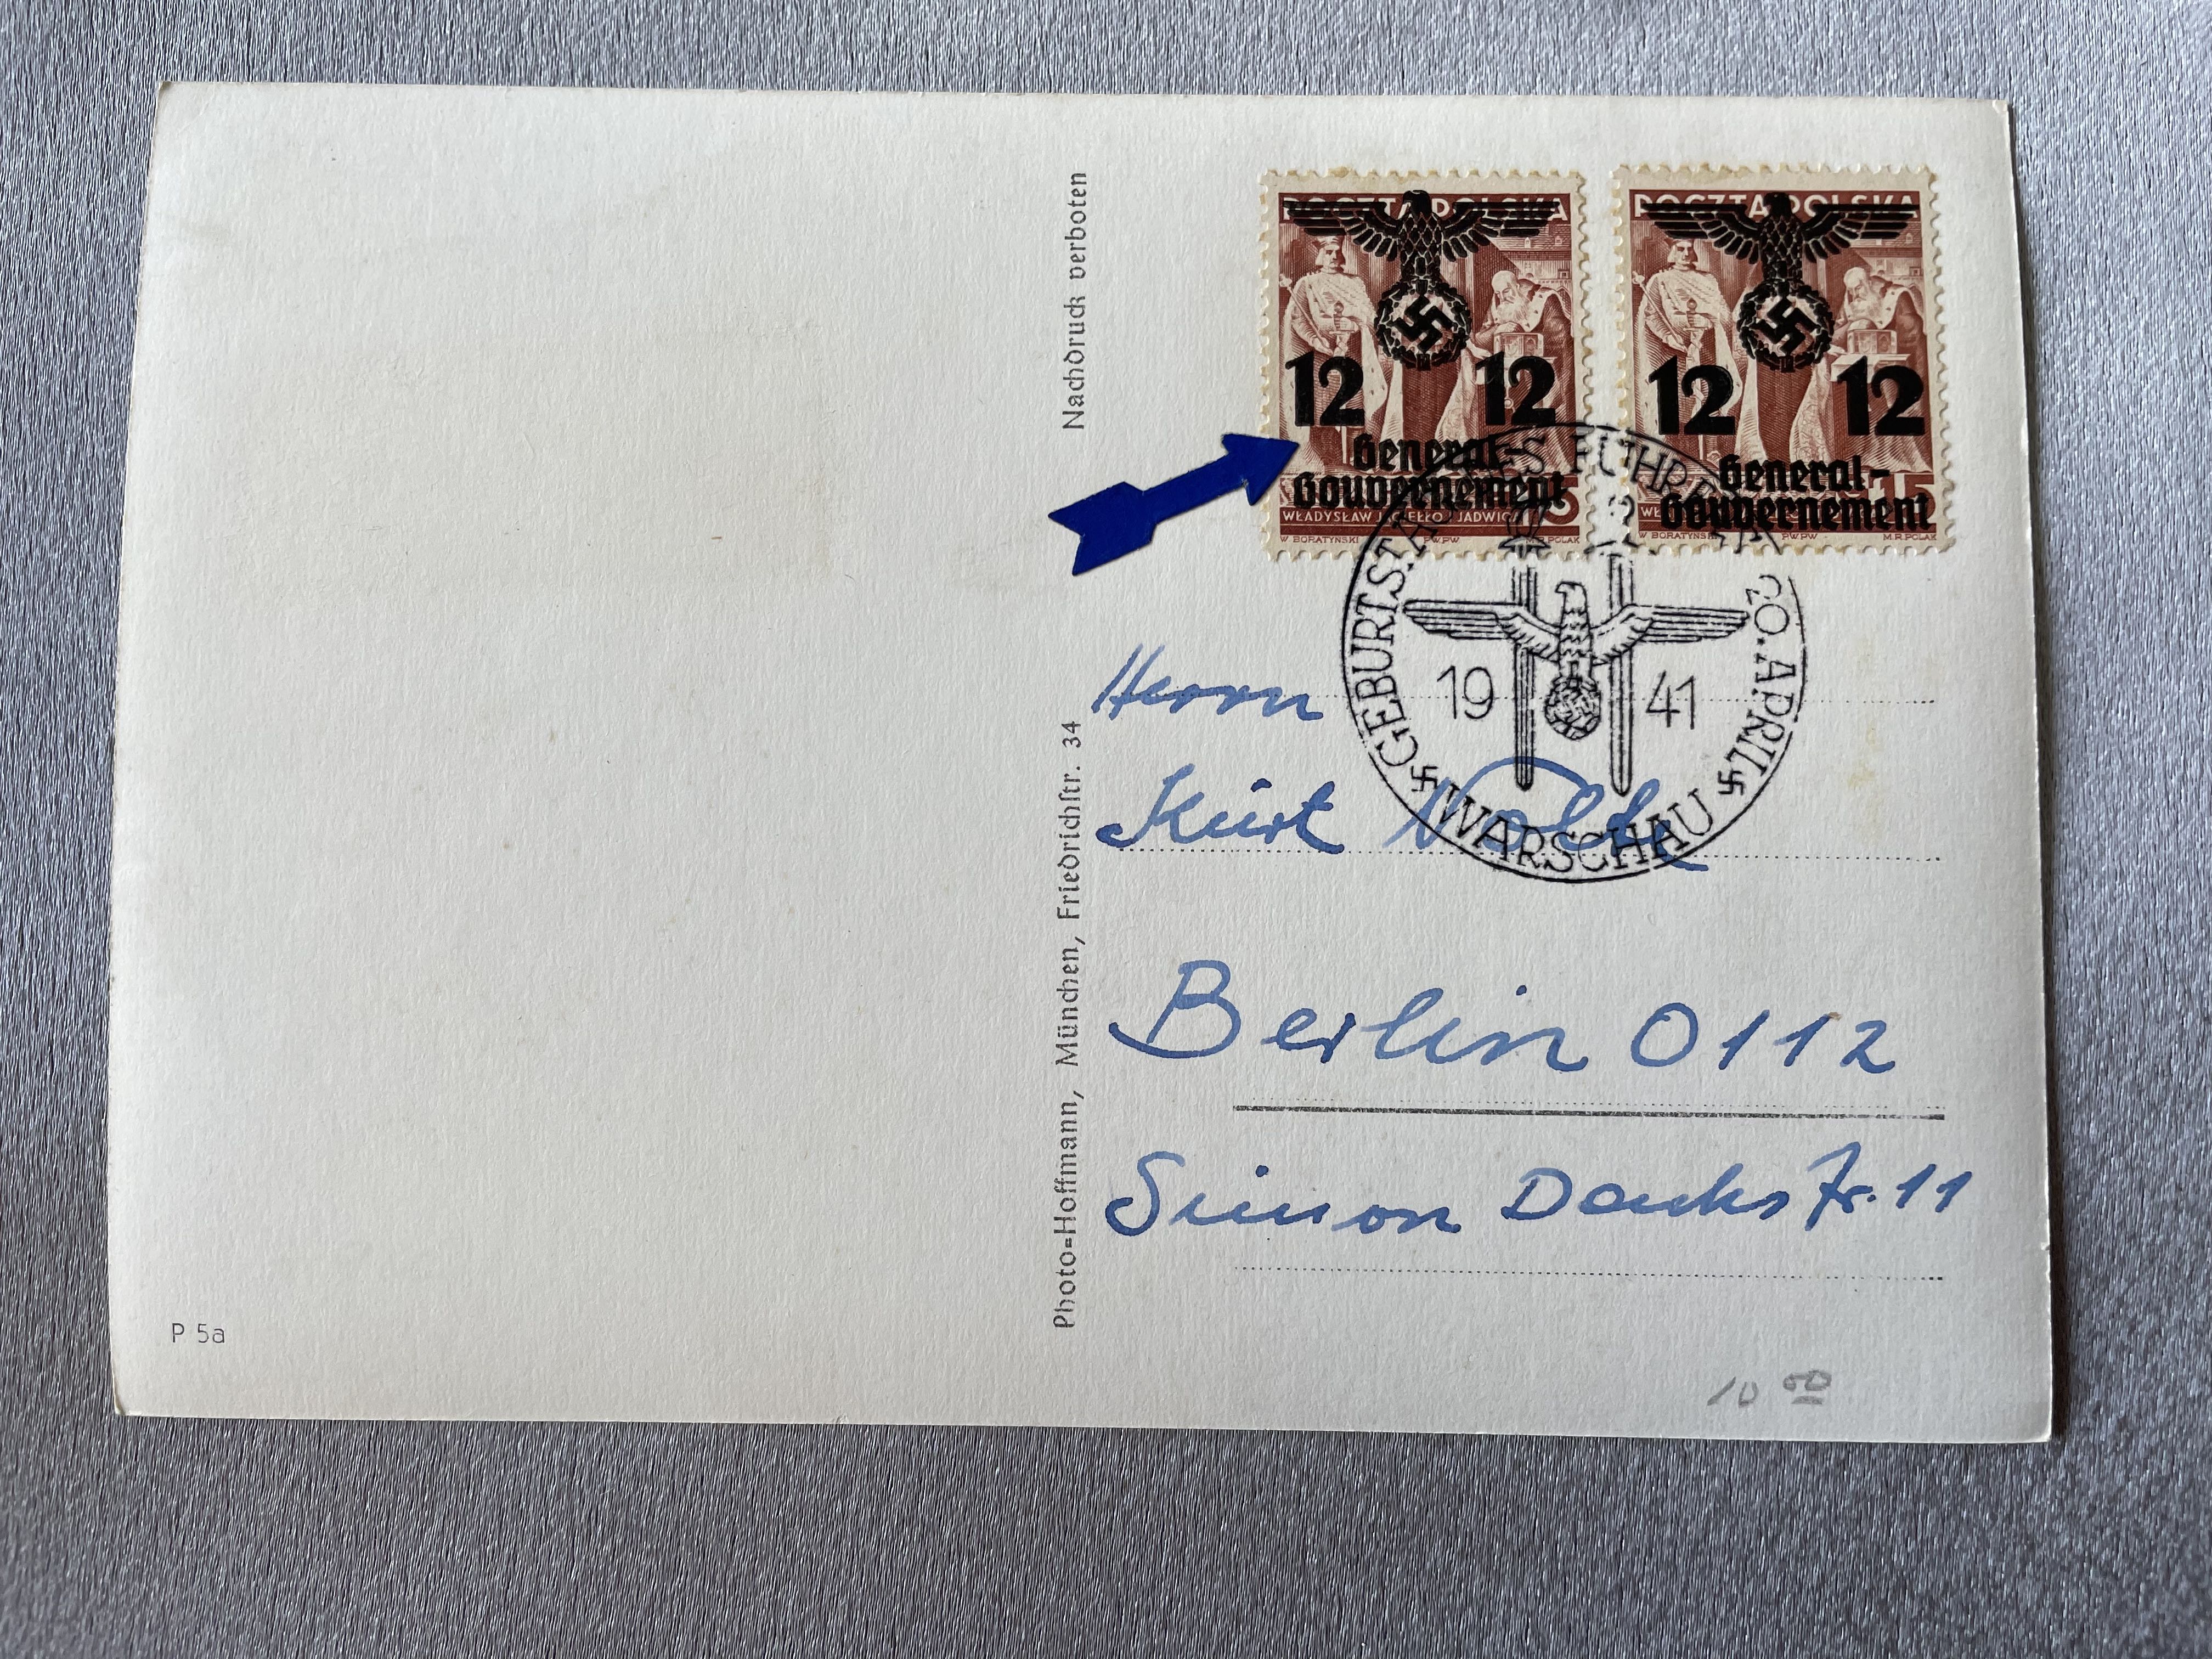 Nachdruck verboten
Photo=Hoffmann, München, Friedrichstr. 34
POCZTA POLSKA
12 12
General-
Gouvernement
15
WŁADYSŁAW JAGIEŁŁO I JADWIGA
W BORATYŃSKI P.W.P.W. M.R.POLAK
POCZTA POLSKA
12 12
General-
Gouvernement
15
W BORATYŃSKI P.W.P.W. M.R.POLAK
GEBURTSTAG DES FÜHRERS 20. APRIL
19 41
WARSCHAU
Herrn
Kurt Nolte
Berlin O 112
Simon Dachs Str. 11
P 5a
10 00